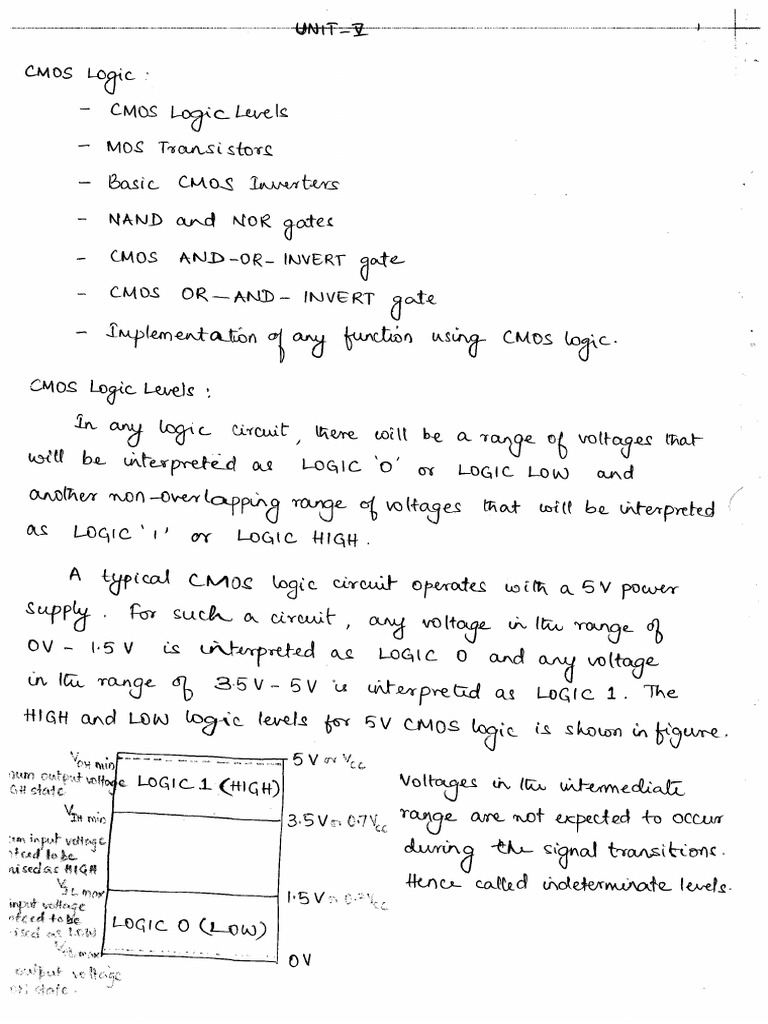 UNIT-V
CMOS Logic :
- CMOS Logic Levels
- MOS Transistors
- Basic CMOS Inverters
- NAND and NOR gates
- CMOS AND-OR-INVERT gate
- CMOS OR-AND-INVERT gate
- Implementation of any function using CMOS logic.
CMOS Logic Levels :
In any logic circuit, there will be a range of voltages that
will be interpreted as LOGIC '0' or LOGIC LOW and
another non-overlapping range of voltages that will be interpreted
as LOGIC '1' or LOGIC HIGH.
A typical CMOS logic circuit operates with a 5V power
supply. For such a circuit, any voltage in the range of
0V - 1.5V is interpreted as LOGIC 0 and any voltage
in the range of 3.5V - 5V is interpreted as LOGIC 1. The
HIGH and LOW logic levels for 5V CMOS logic is shown in figure.
VOH min
output voltage
state
LOGIC 1 (HIGH)
5V or VCC
VIH min
3.5V or 0.7VCC
input voltage
to be
as HIGH
VIL max
1.5V
VCC
input voltage
to be
as LOW
LOGIC 0 (LOW)
max
0V
output voltage
state.
Voltages in the intermediate
range are not expected to occur
during the signal transitions.
Hence called indeterminate levels.